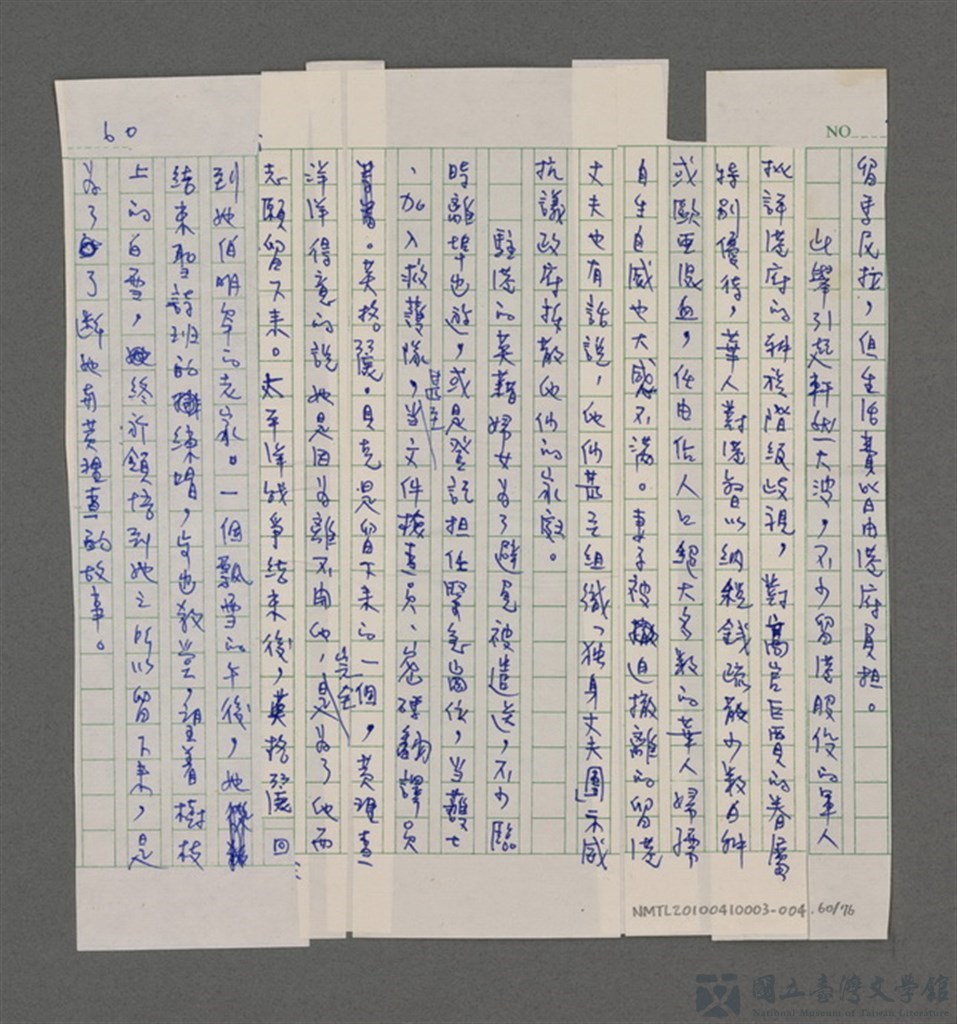 60
NO
留馬尼拉，但生活費以自由港府負担。
此舉引起軒然大波，不少留港服役的軍人
批評港府的种族階級歧視，對高官巨賈的眷屬
特別優待，華人對港督以納稅錢疏散少數白种
或歐亚混血，任由佔人口絕大多數的華人婦孺
自生自滅也大感不滿。妻子被強迫撤離的留港
丈夫也有話說，他们甚至組織「独身丈夫團」示威
抗議政府拆散他们的家庭。
駐港的英籍婦女為了避免被遣送，不少臨
時離埠也避，或是登記担任緊急崗位，当護士
、加入救護隊，甚至当文件檢查員、密碼翻譯員
。英格麗．貝克是留下来的一個，黃理查
洋洋得意的說她是因為離不開他，是完全為了他而
志願留下来。太平洋战爭結束後，英格麗回
到她伯明罕的老家。一個飄雪的午後，她
結束聖詩班的練唱，步出教堂，望着樹枝
上的白雪，終於領悟到她之所以留下来，是
為了了斷她與黃理查的故事。
NMTL20100410003-004.60/76
國立臺灣文學館
National Museum of Taiwan Literature